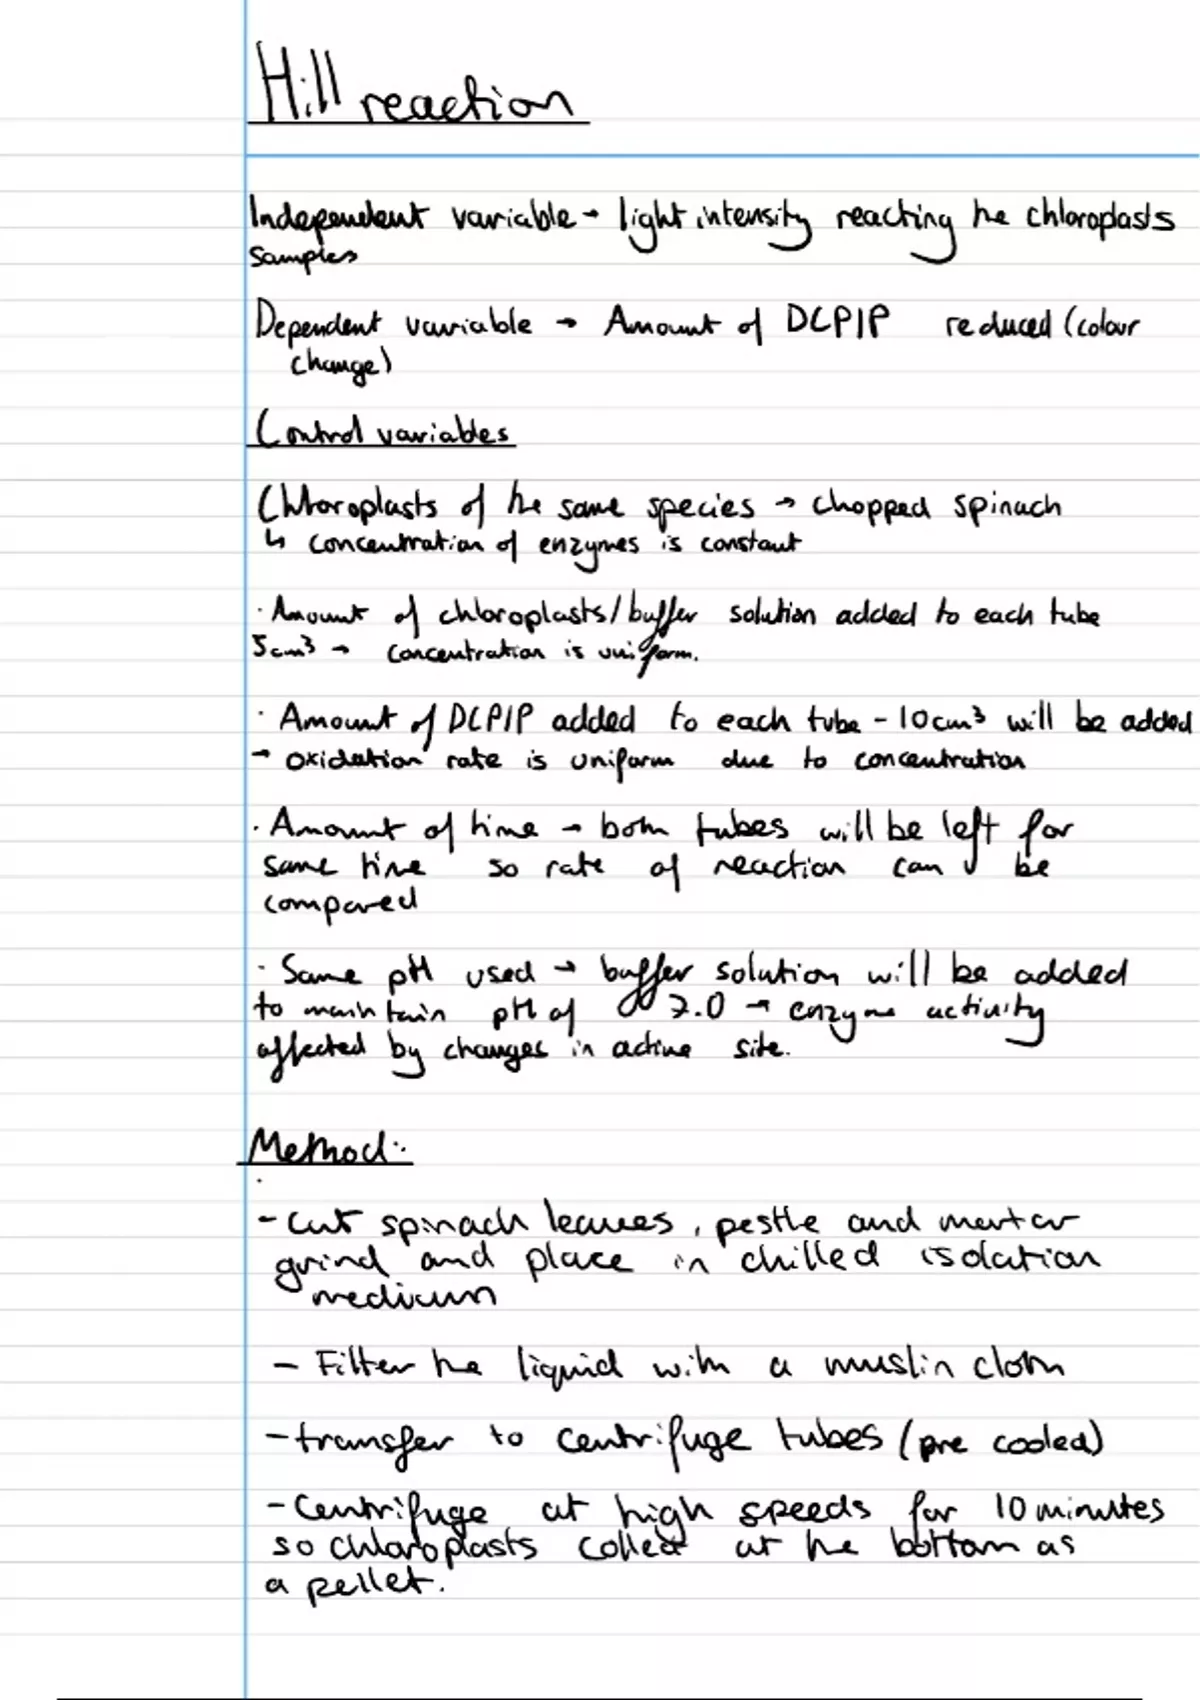 Hill reaction
Independent variable → light intensity reaching the chloroplasts
samples
Dependent variable → Amount of DCPIP reduced (colour
change)
Control variables
Chloroplasts of the same species → chopped spinach
↳ concentration of enzymes is constant
· Amount of chloroplasts/buffer solution added to each tube
5cm³ → concentration is uniform.
· Amount of DCPIP added to each tube - 10cm³ will be added
→ oxidation rate is uniform due to concentration
· Amount of time → both tubes will be left for
same time so rate of reaction can be
compared
· Same pH used → buffer solution will be added
to maintain pH of 7.0 → enzyme activity
affected by changes in active site.
Method:
- Cut spinach leaves, pestle and mortar
grind and place in chilled isolation
medium
- Filter the liquid with a muslin cloth
- transfer to centrifuge tubes (pre cooled)
- Centrifuge at high speeds for 10 minutes
so chloroplasts collect at the bottom as
a pellet.